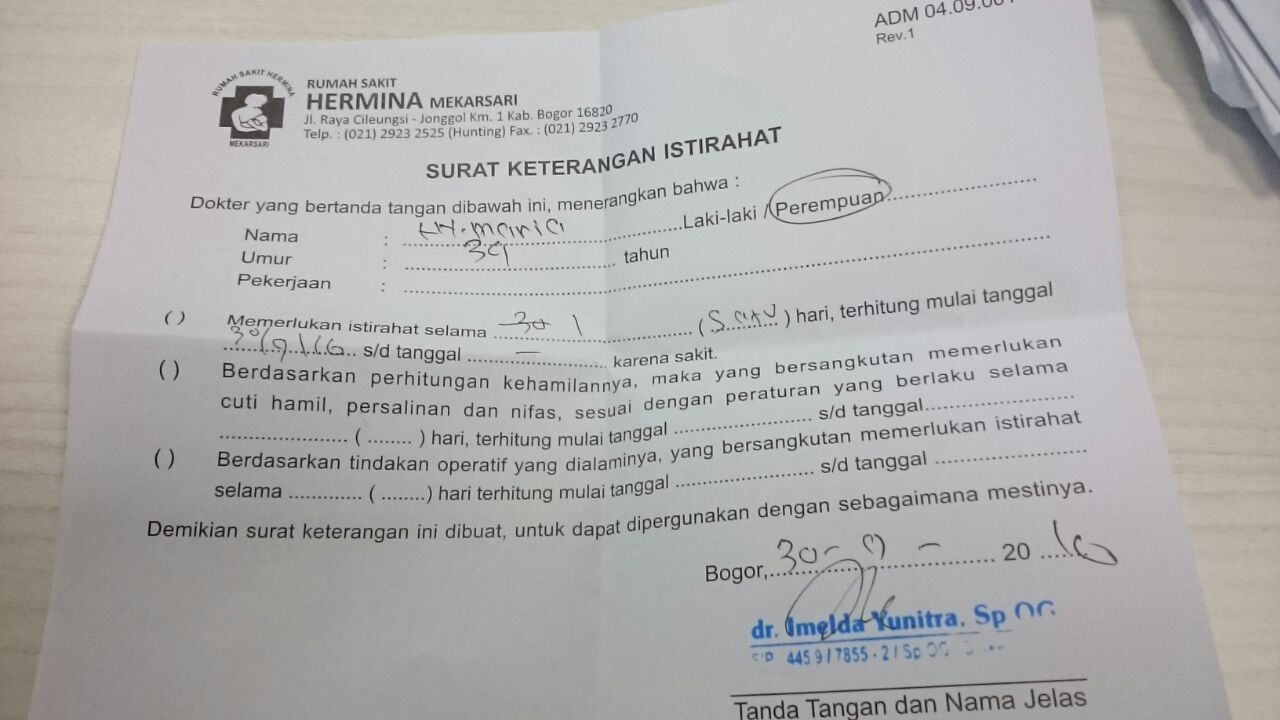 ADM 04.09.00
Rev.1
RUMAH SAKIT HERMINA
MEKARSARI
RUMAH SAKIT
HERMINA MEKARSARI
Jl. Raya Cileungsi - Jonggol Km. 1 Kab. Bogor 16820
Telp. : (021) 2923 2525 (Hunting) Fax. : (021) 2923 2770
SURAT KETERANGAN ISTIRAHAT
Dokter yang bertanda tangan dibawah ini, menerangkan bahwa :
Nama : maria Laki-laki / Perempuan
Umur : 39 tahun
Pekerjaan :
( ) Memerlukan istirahat selama 30 1 (Satu) hari, terhitung mulai tanggal
30/9/16 s/d tanggal - karena sakit.
( ) Berdasarkan perhitungan kehamilannya, maka yang bersangkutan memerlukan
cuti hamil, persalinan dan nifas, sesuai dengan peraturan yang berlaku selama
( ........ ) hari, terhitung mulai tanggal ........ s/d tanggal........
( ) Berdasarkan tindakan operatif yang dialaminya, yang bersangkutan memerlukan istirahat
selama ............. ( ........) hari terhitung mulai tanggal ........ s/d tanggal ........
Demikian surat keterangan ini dibuat, untuk dapat dipergunakan dengan sebagaimana mestinya.
Bogor, 30 - 9 - 20 16
dr. Imelda Yunitra. Sp OG
445.9 / 7855 - 2 / Sp
Tanda Tangan dan Nama Jelas